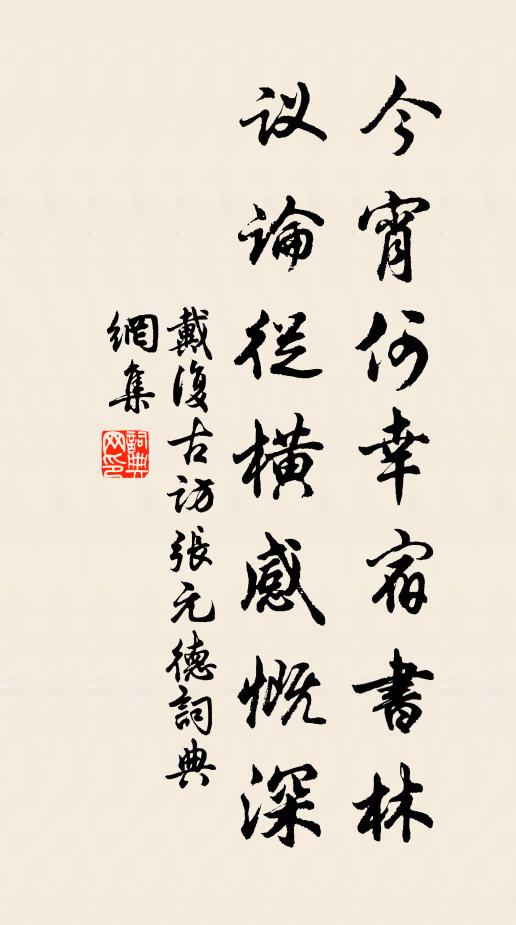 今宵何幸宿書林
议論從橫感慨深
戴復古访張元德詞典
網集
詞典网印